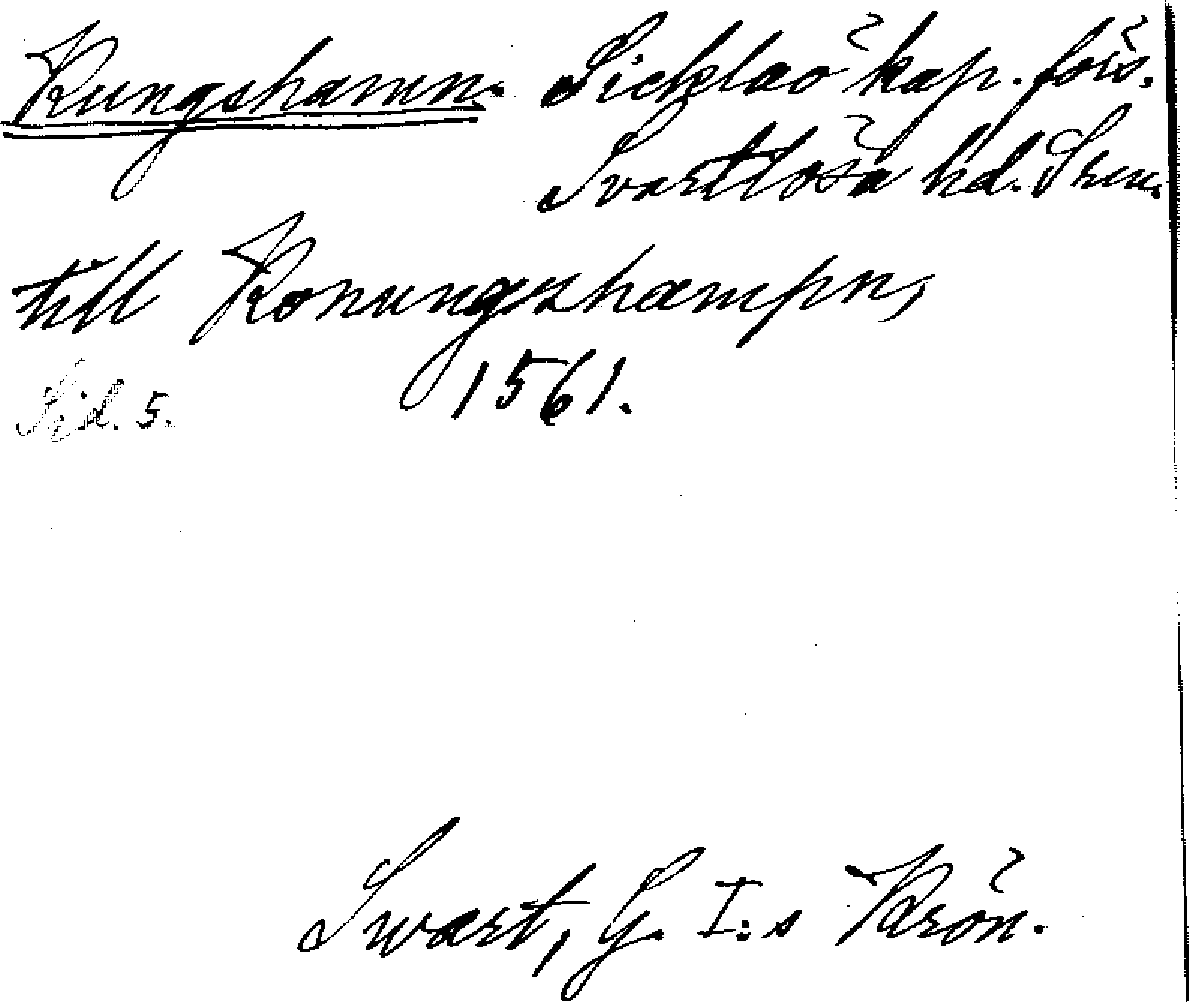 Kungshamn. Sicklaö kap. förs.
Svartlösa hd. Srm.
till Konungshampn,
1561.
Sid. 5.
Swart, G. I:s Krön.